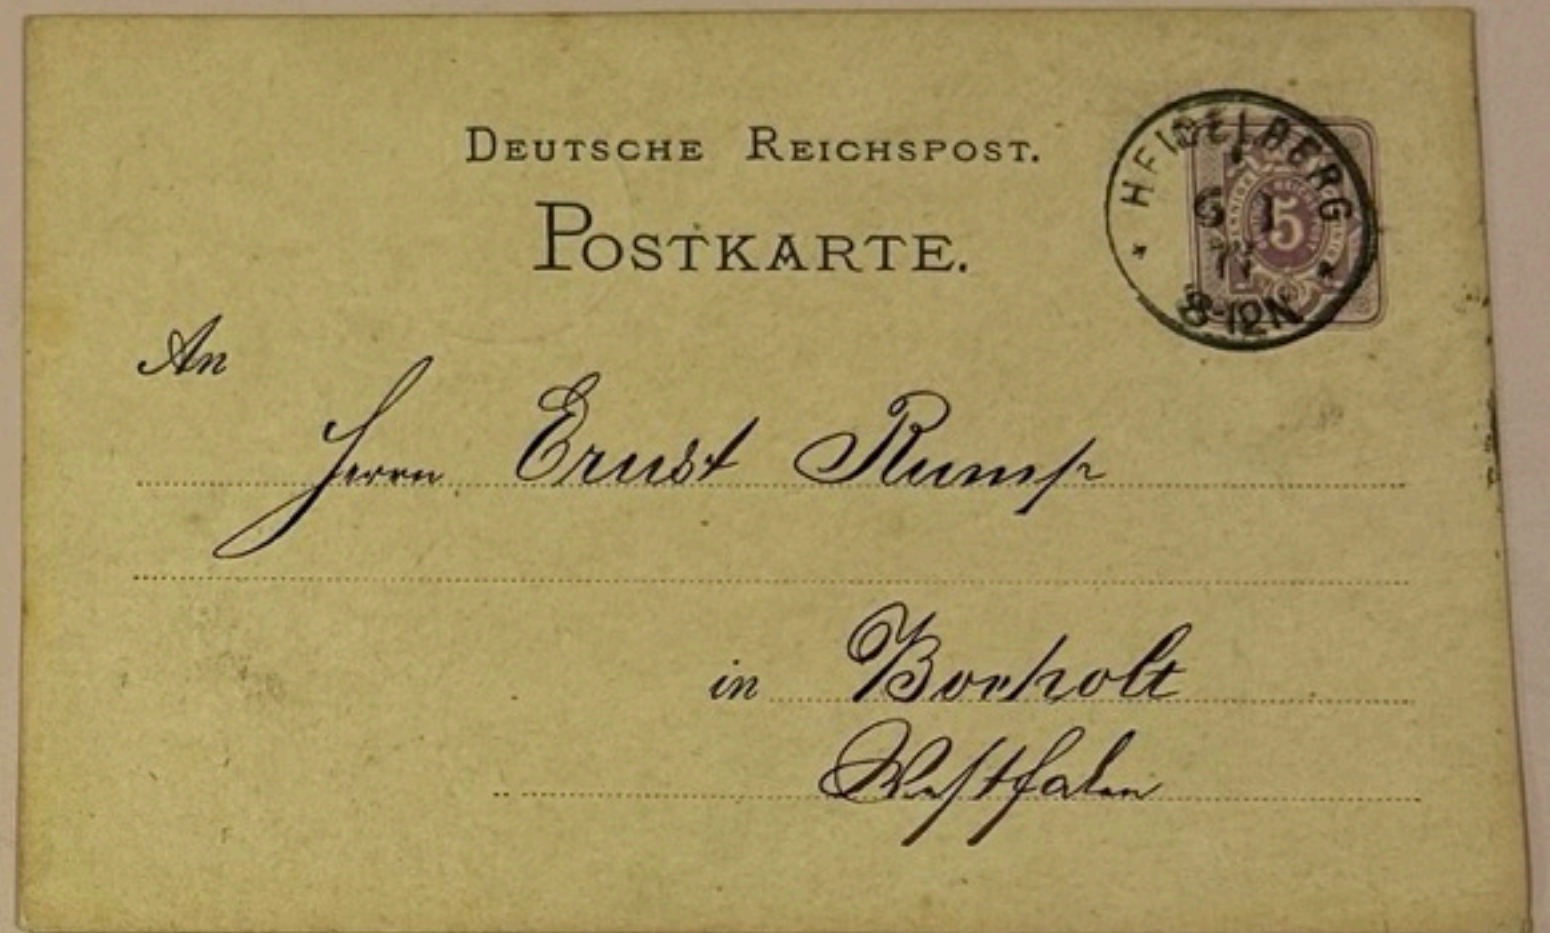 DEUTSCHE REICHSPOST.
POSTKARTE.
HEIDELBERG
5
8-12N
An
Herrn Ernst Rump
in Bocholt
Westfalen